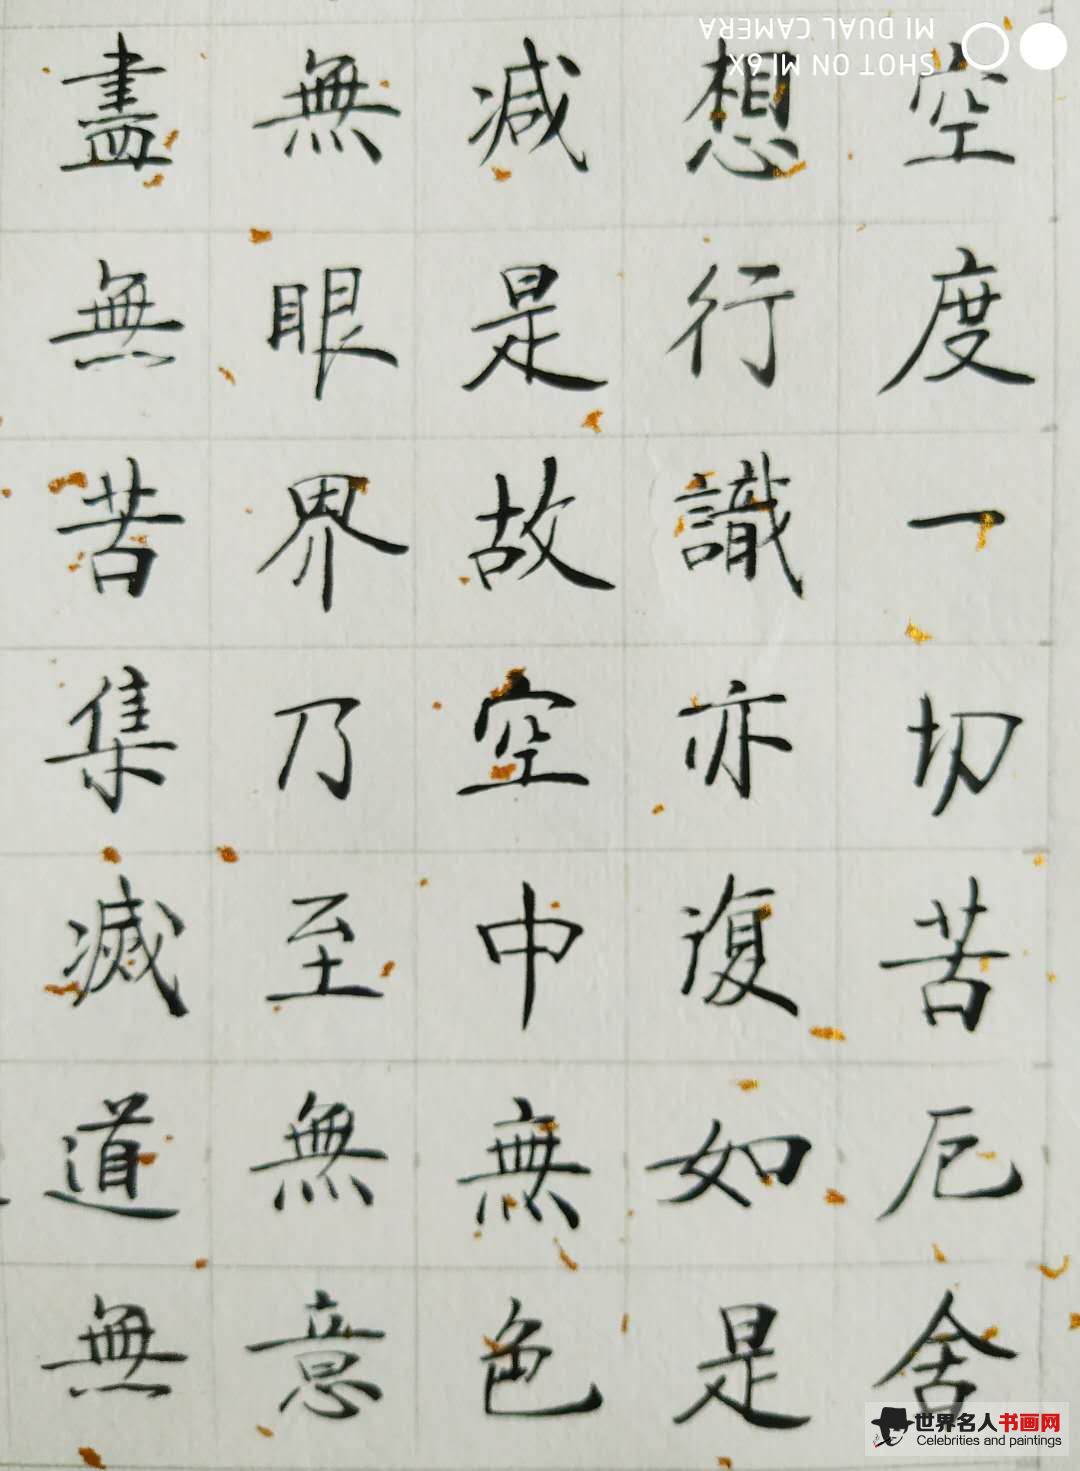 空度一切苦厄舍
想行識亦復如是
减是故空中無色
無眼界乃至無意
盡無苦集滅道無
SHOT ON MI 6X
MI DUAL CAMERA
世界名人书画网
Celebrities and paintings